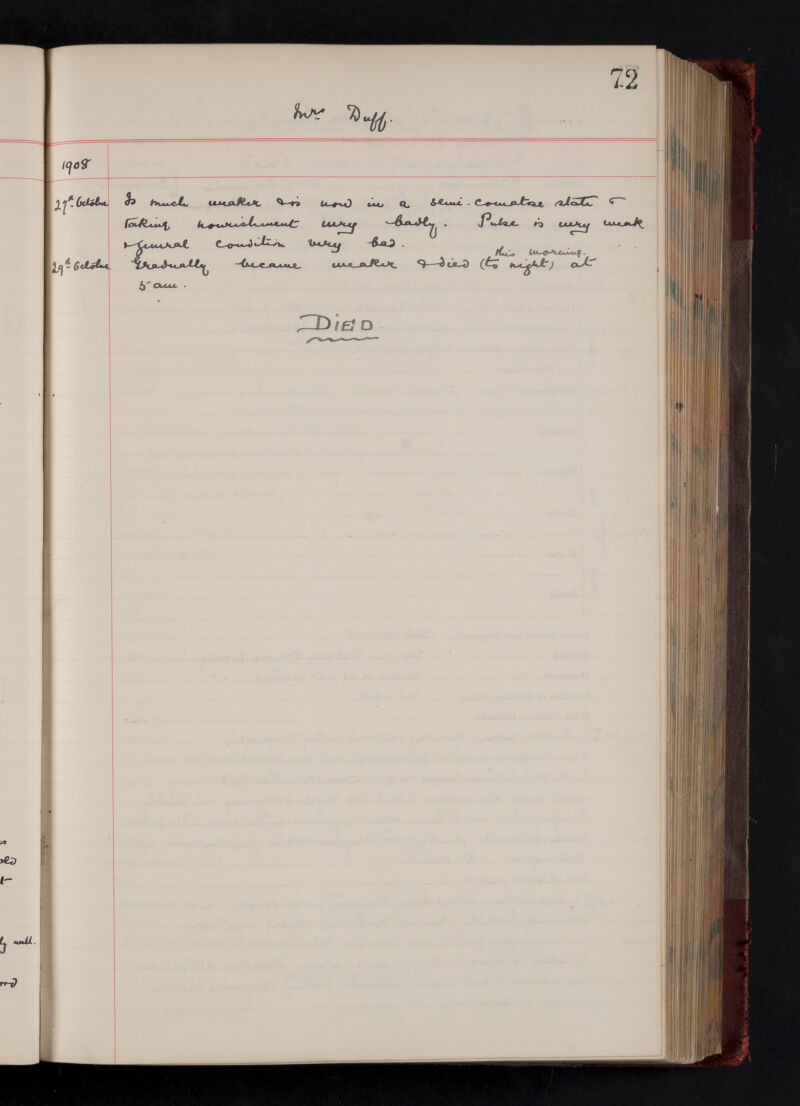 72
Mrs Duff.
1908
27th October Is much weaker & is now in a semi-comatose state &
taking nourishment very badly. Pulse is very weak
& general condition very bad.
this morning.
29th October Gradually became weaker & died (to night) at
5 am.
DIED
ly well.